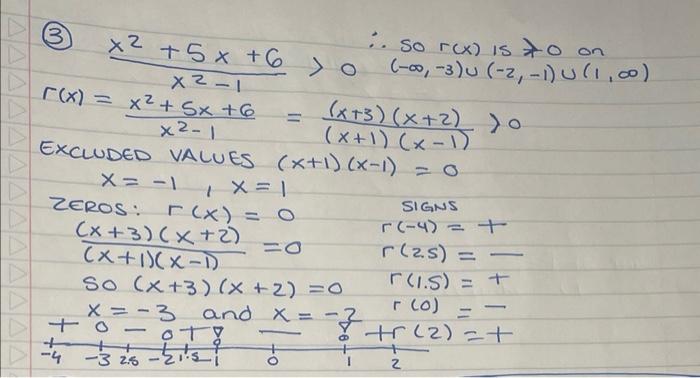 ③ x² + 5x + 6 / x² - 1 > 0
∴ so r(x) is > 0 on
(-∞, -3) ∪ (-2, -1) ∪ (1, ∞)
r(x) = x² + 5x + 6 / x² - 1 = (x+3)(x+2) / (x+1)(x-1) > 0
EXCLUDED VALUES (x+1)(x-1) = 0
x = -1 , x = 1
ZEROS: r(x) = 0
(x+3)(x+2) / (x+1)(x-1) = 0
so (x+3)(x+2) = 0
x = -3 and x = -2
SIGNS
r(-4) = +
r(2.5) = —
r(1.5) = +
r(0) = -
r(2) = +
+ 0 - 0 + — +
-4 -3 2.5 -2 1.5 -1 0 1 2